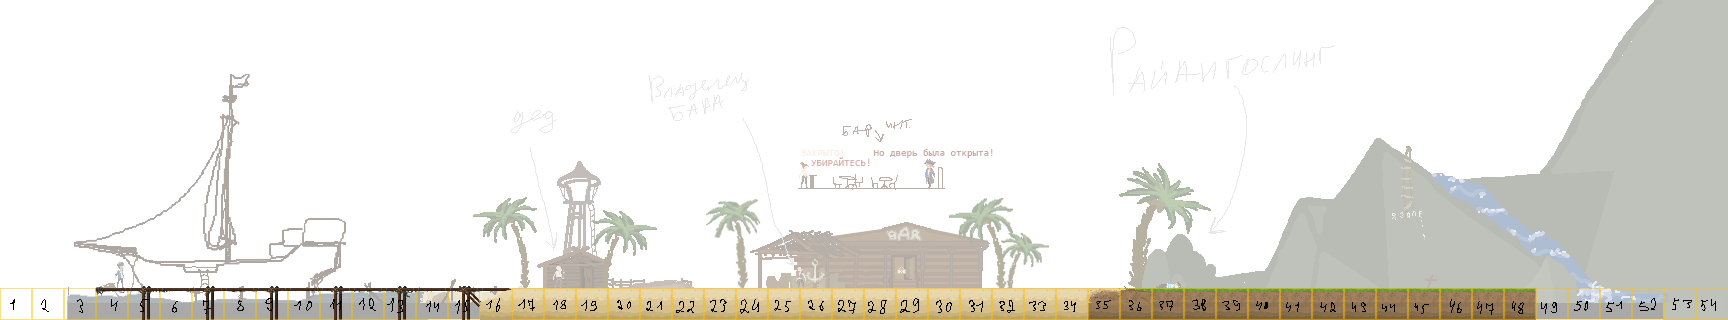 Райангослинг
Владелец
БАРА
дед
БАР инт.
ЗАКРЫТО!
Но дверь была открыта!
УБИРАЙТЕСЬ!
BAR
1 2 3 4 5 6 7 8 9 10 11 12 13 14 15 16 17 18 19 20 21 22 23 24 25 26 27 28 29 30 31 32 33 34 35 36 37 38 39 40 41 42 43 44 45 46 47 48 49 50 51 52 53 54